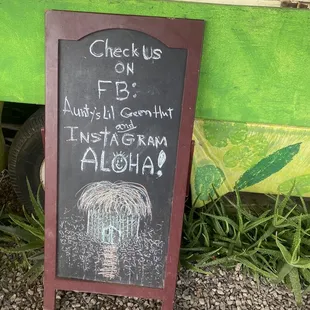 Check us
on
FB:
Aunty's Lil Green Hut
and
Instagram
Aloha!